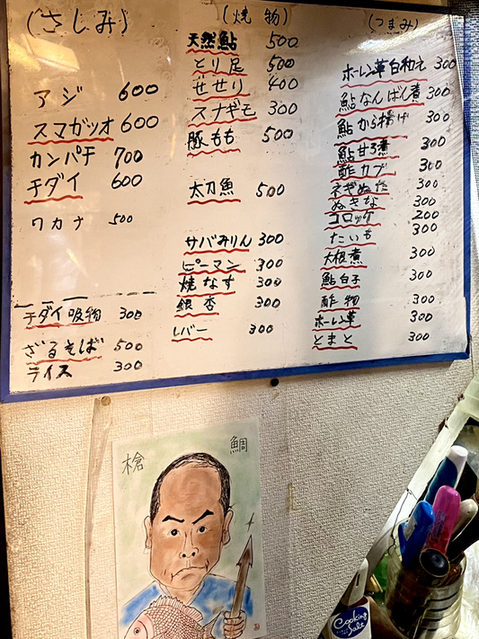 (さしみ)
アジ 600
スマガツオ 600
カンパチ 700
チダイ 600
ワカナ 500
チダイ吸物 300
ざるそば 500
ライス 300
(焼物)
天然鮎 500
とり足 500
せせり 400
スナギモ 300
豚もも 500
太刀魚 500
サバみりん 300
ピーマン 300
焼なす 300
銀杏 300
レバー 300
(つまみ)
ホーレン草白和え 300
鮎なんばん煮 300
鮎から揚げ 300
鮎甘ろ煮 300
酢カブ 300
ネギぬた 300
ぬきな 300
コロッケ 200
たいも 300
大根煮 300
鮎白子 300
酢物 300
ホーレン草 300
とまと 300
槍 鯛
Cooking Sake